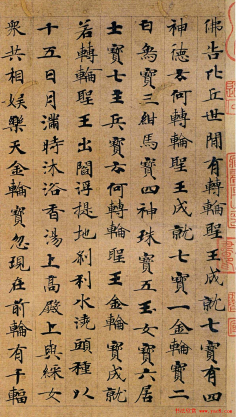 佛告比丘世間有轉輪聖王成就七寶有四
神德云何轉輪聖王成就七寶一金輪寶二
白象寶三紺馬寶四神珠寶五玉女寶六居
士寶七主兵寶云何轉輪聖王金輪寶成就
若轉輪聖王出閻浮提地剎利水澆頭種以
十五日月滿時沐浴香湯上高殿上與婇女
衆共相娛樂天金輪寶忽現在前輪有千輻